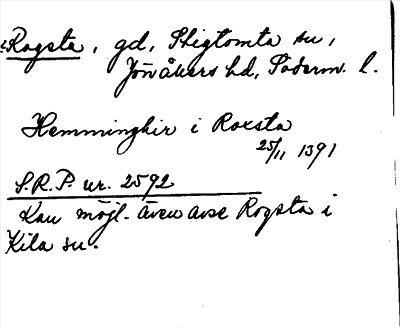 Rogsta, gd, Stigtomta sn,
Jönåkers hd, Söderm. l.
Hemminghir i Roxsta
25/11 1391
S.R.P. nr. 2592
Kan möjl. även avse Rogsta i
Kila sn.